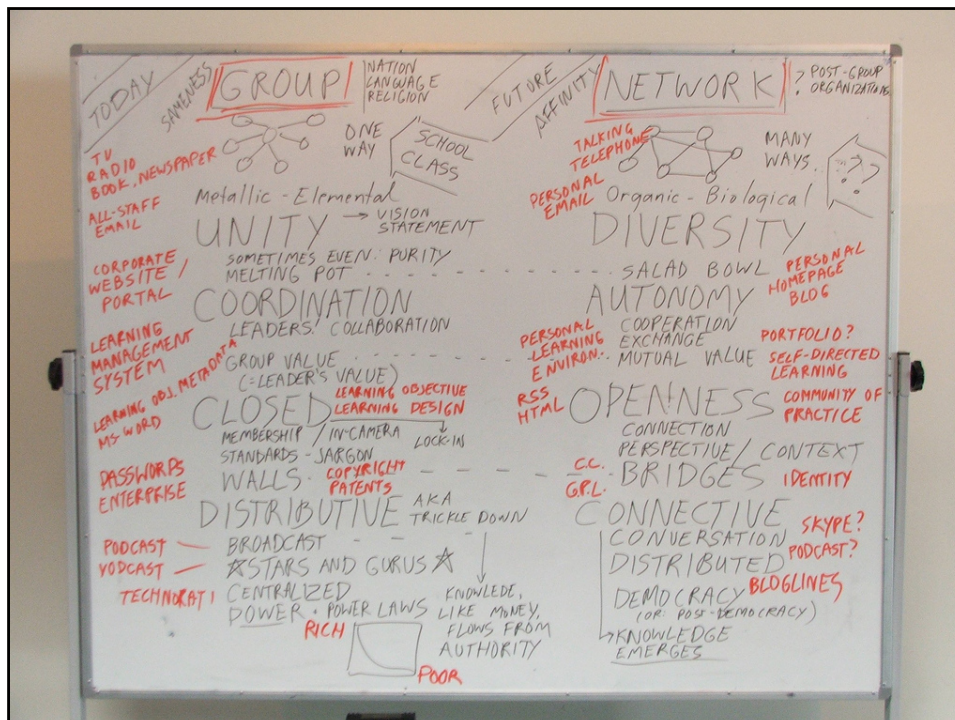 TODAY
SAMENESS
GROUP
NATION
LANGUAGE
RELIGION
TV
RADIO
BOOK, NEWSPAPER
ONE
WAY
SCHOOL
CLASS
ALL-STAFF
EMAIL
Metallic - Elemental
UNITY → VISION
STATEMENT
SOMETIMES EVEN: PURITY
MELTING POT
CORPORATE
WEBSITE /
PORTAL
COORDINATION
LEADERS! COLLABORATION
LEARNING
MANAGEMENT
SYSTEM
GROUP VALUE
(=LEADER'S VALUE)
LEARNING OBJ. METADATA
MS-WORD
CLOSED
LEARNING OBJECTIVE
LEARNING DESIGN
MEMBERSHIP / IN-CAMERA
LOCK-IN
STANDARDS - JARGON
PASSWORDS
ENTERPRISE
WALLS
COPYRIGHT
PATENTS
DISTRIBUTIVE
AKA
TRICKLE DOWN
PODCAST
VODCAST
TECHNORATI
BROADCAST
☆STARS AND GURUS☆
CENTRALIZED
POWER · POWER LAWS
RICH
POOR
KNOWLEDE,
LIKE MONEY,
FLOWS FROM
AUTHORITY
FUTURE
AFFINITY
NETWORK
? POST-GROUP
? ORGANIZATIONS
TALKING
TELEPHONE
MANY
WAYS.
???
PERSONAL
EMAIL
Organic - Biological
DIVERSITY
SALAD BOWL
PERSONAL
HOMEPAGE
BLOG
AUTONOMY
COOPERATION
EXCHANGE
MUTUAL VALUE
PERSONAL
LEARNING
ENVIRON..
PORTFOLIO?
SELF-DIRECTED
LEARNING
RSS
HTML
OPENNESS
COMMUNITY OF
PRACTICE
CONNECTION
PERSPECTIVE / CONTEXT
C.C.
G.P.L.
BRIDGES
IDENTITY
CONNECTIVE
CONVERSATION
SKYPE?
PODCAST?
DISTRIBUTED
BLOGLINES
DEMOCRACY
(OR: POST-DEMOCRACY)
KNOWLEDGE
EMERGES